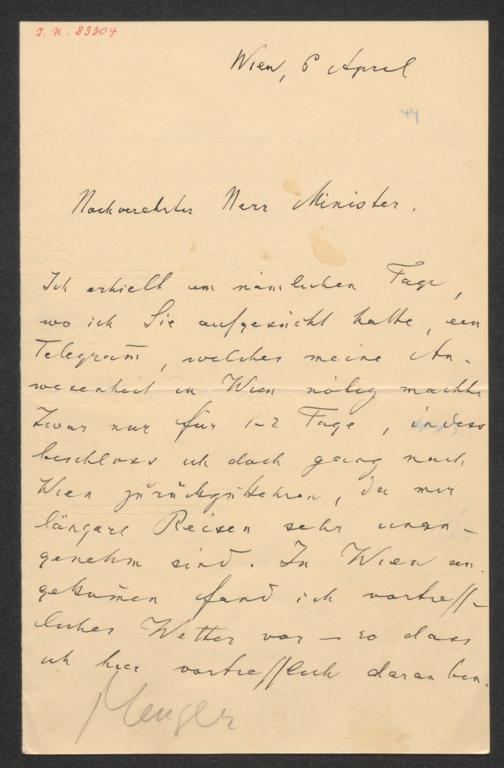 J. N. 83304
Wien, 6 April
44
Hochverehrter Herr Minister.
Ich erhielt am nämlichen Tage,
wo ich Sie aufgesucht hatte, ein
Telegram̄, welches meine An-
wesenheit in Wien nötig machte
Zwar nur für 1-2 Tage, indess
beschloss ich doch ganz nach
Wien zurückzukehren, da mir
längere Reisen sehr unan-
genehm sind. In Wien an
gekom̄en fand ich vortreff-
liches Wetter vor – so dass
ich hier vortrefflich daran bin.
Menger